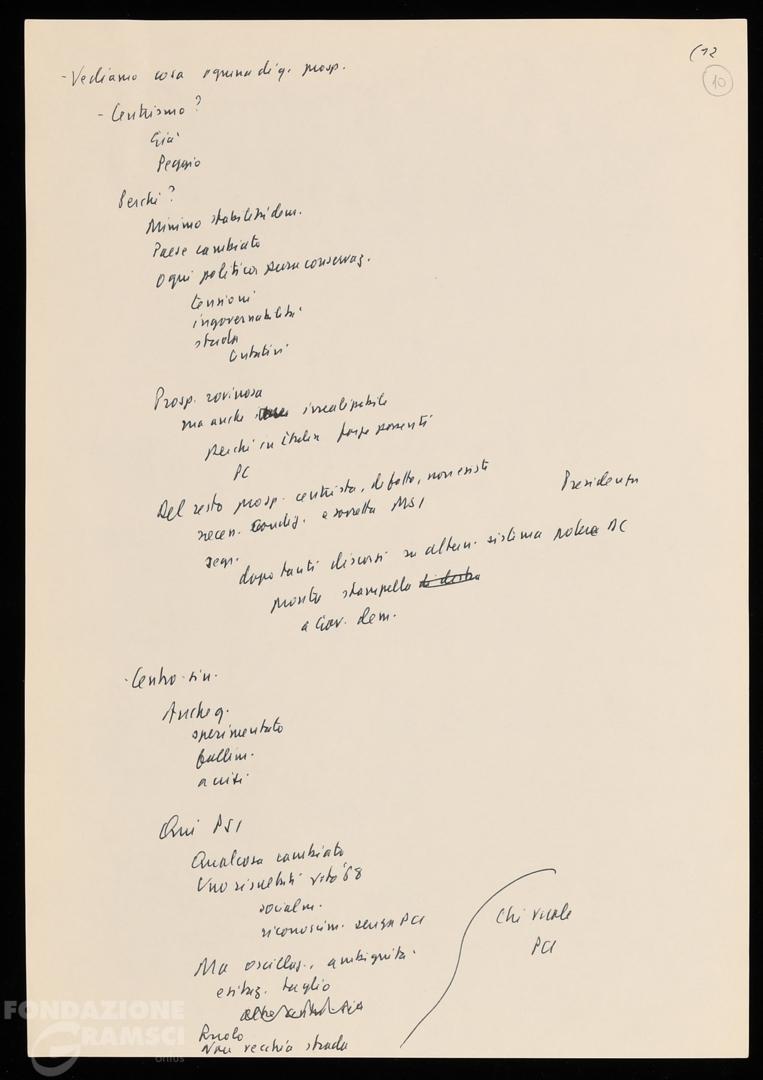 (12
10
- Vediamo cosa ognuna di q. prosp.
- Centrismo?
Già
Peggio
Perché?
Minimo stabilità dem.
Paese cambiato
Ogni politica pura conservaz.
tensioni
ingovernabilità
strada
Prosp. rovinosa
ma anche irrealizzabile
perché in Italia forze possenti
PC
Del resto prosp. centrista, di fatto, non esiste
Presidenza
neces. condiz. e sorretta MSI
segr.
dopo tanti discorsi su altern. sistema potere DC
pronto stampella di destra
a Gov. dem.
- Centro-sin.
Anche q.
sperimentato
fallim.
a crisi
Qui PSI
Qualcosa cambiato
Uno risultati voto '68
socialm.
riconoscim. senza PCI
Chi vuole
PCI
Ma oscillaz., ambiguità.
esitaz. taglio
Ruolo
Non vecchia strada
FONDAZIONE
GRAMSCI
onlus